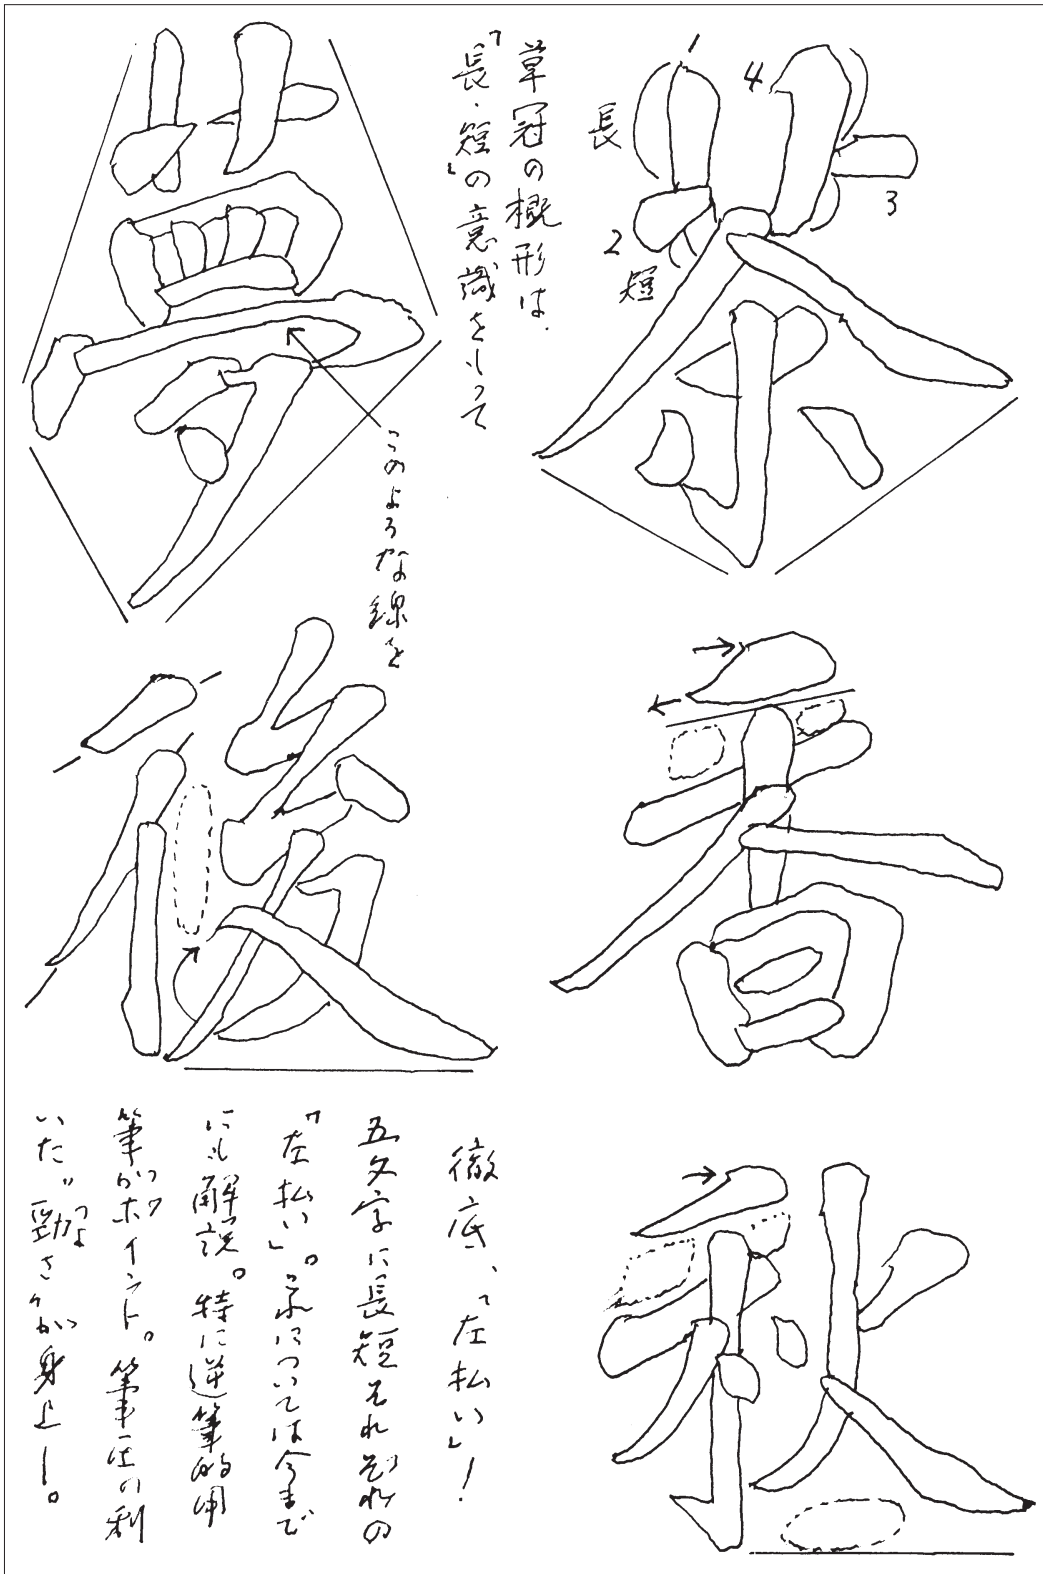 茶
1
4
長
3
2
短
草冠の概形は、
「長・短」の意識をもって
夢
このような線を
香
後
秋
徹底、「左払い」!
五文字に長短それぞれの
「左払い」。これについては今まで
にも解説。特に逆筆的用
筆がポイント。筆圧の利
いた〝勁(つよ)さ〟が身上―。